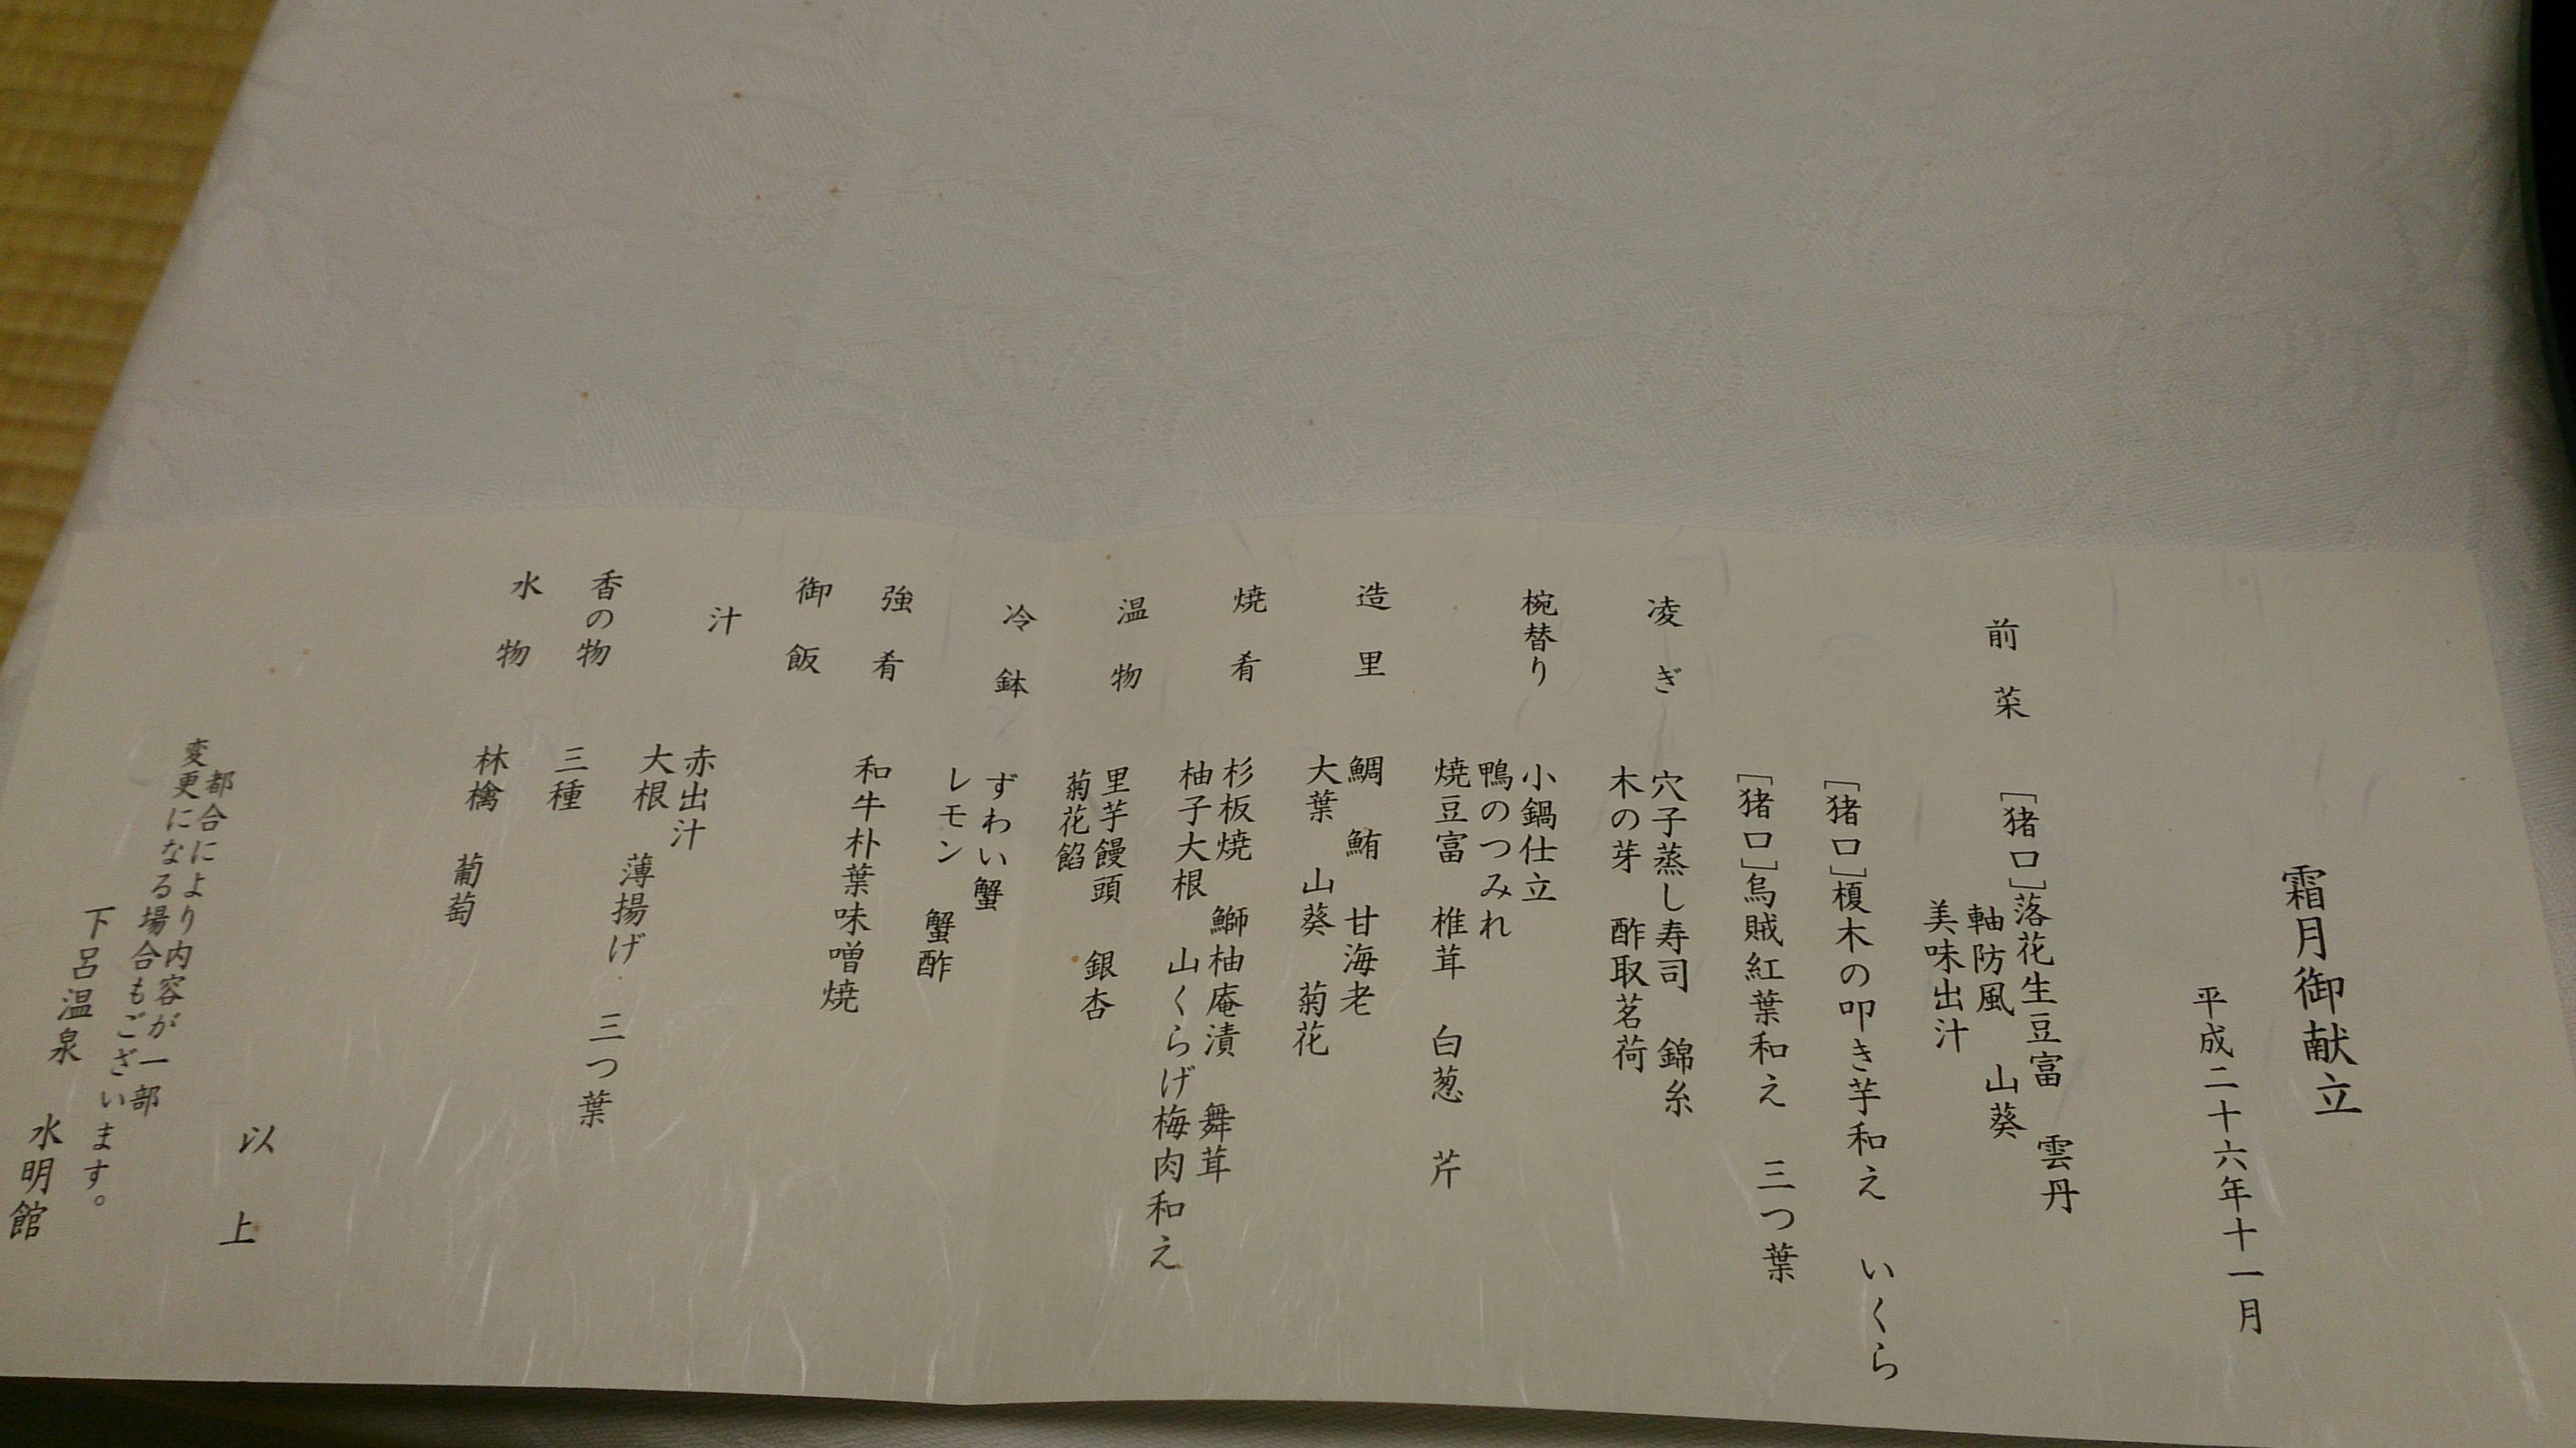 霜月御献立
平成二十六年十一月
前菜
[猪口]落花生豆富 雲丹
軸防風 山葵
美味出汁
[猪口]榎木の叩き芋和え いくら
[猪口]烏賊紅葉和え 三つ葉
凌ぎ
穴子蒸し寿司 錦糸
木の芽 酢取茗荷
椀替り
小鍋仕立
鴨のつみれ
焼豆富 椎茸 白葱 芹
造里
鯛 鮪 甘海老
大葉 山葵 菊花
焼肴
杉板焼 鰤柚庵漬 舞茸
柚子大根 山くらげ梅肉和え
温物
里芋饅頭 銀杏
菊花餡
冷鉢
ずわい蟹
レモン 蟹酢
強肴
和牛朴葉味噌焼
御飯
汁
赤出汁
大根 薄揚げ 三つ葉
香の物
三種
水物
林檎 葡萄
以上
都合により内容が一部
変更になる場合もございます。
下呂温泉 水明館